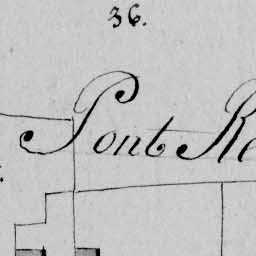 36.
Pont Re